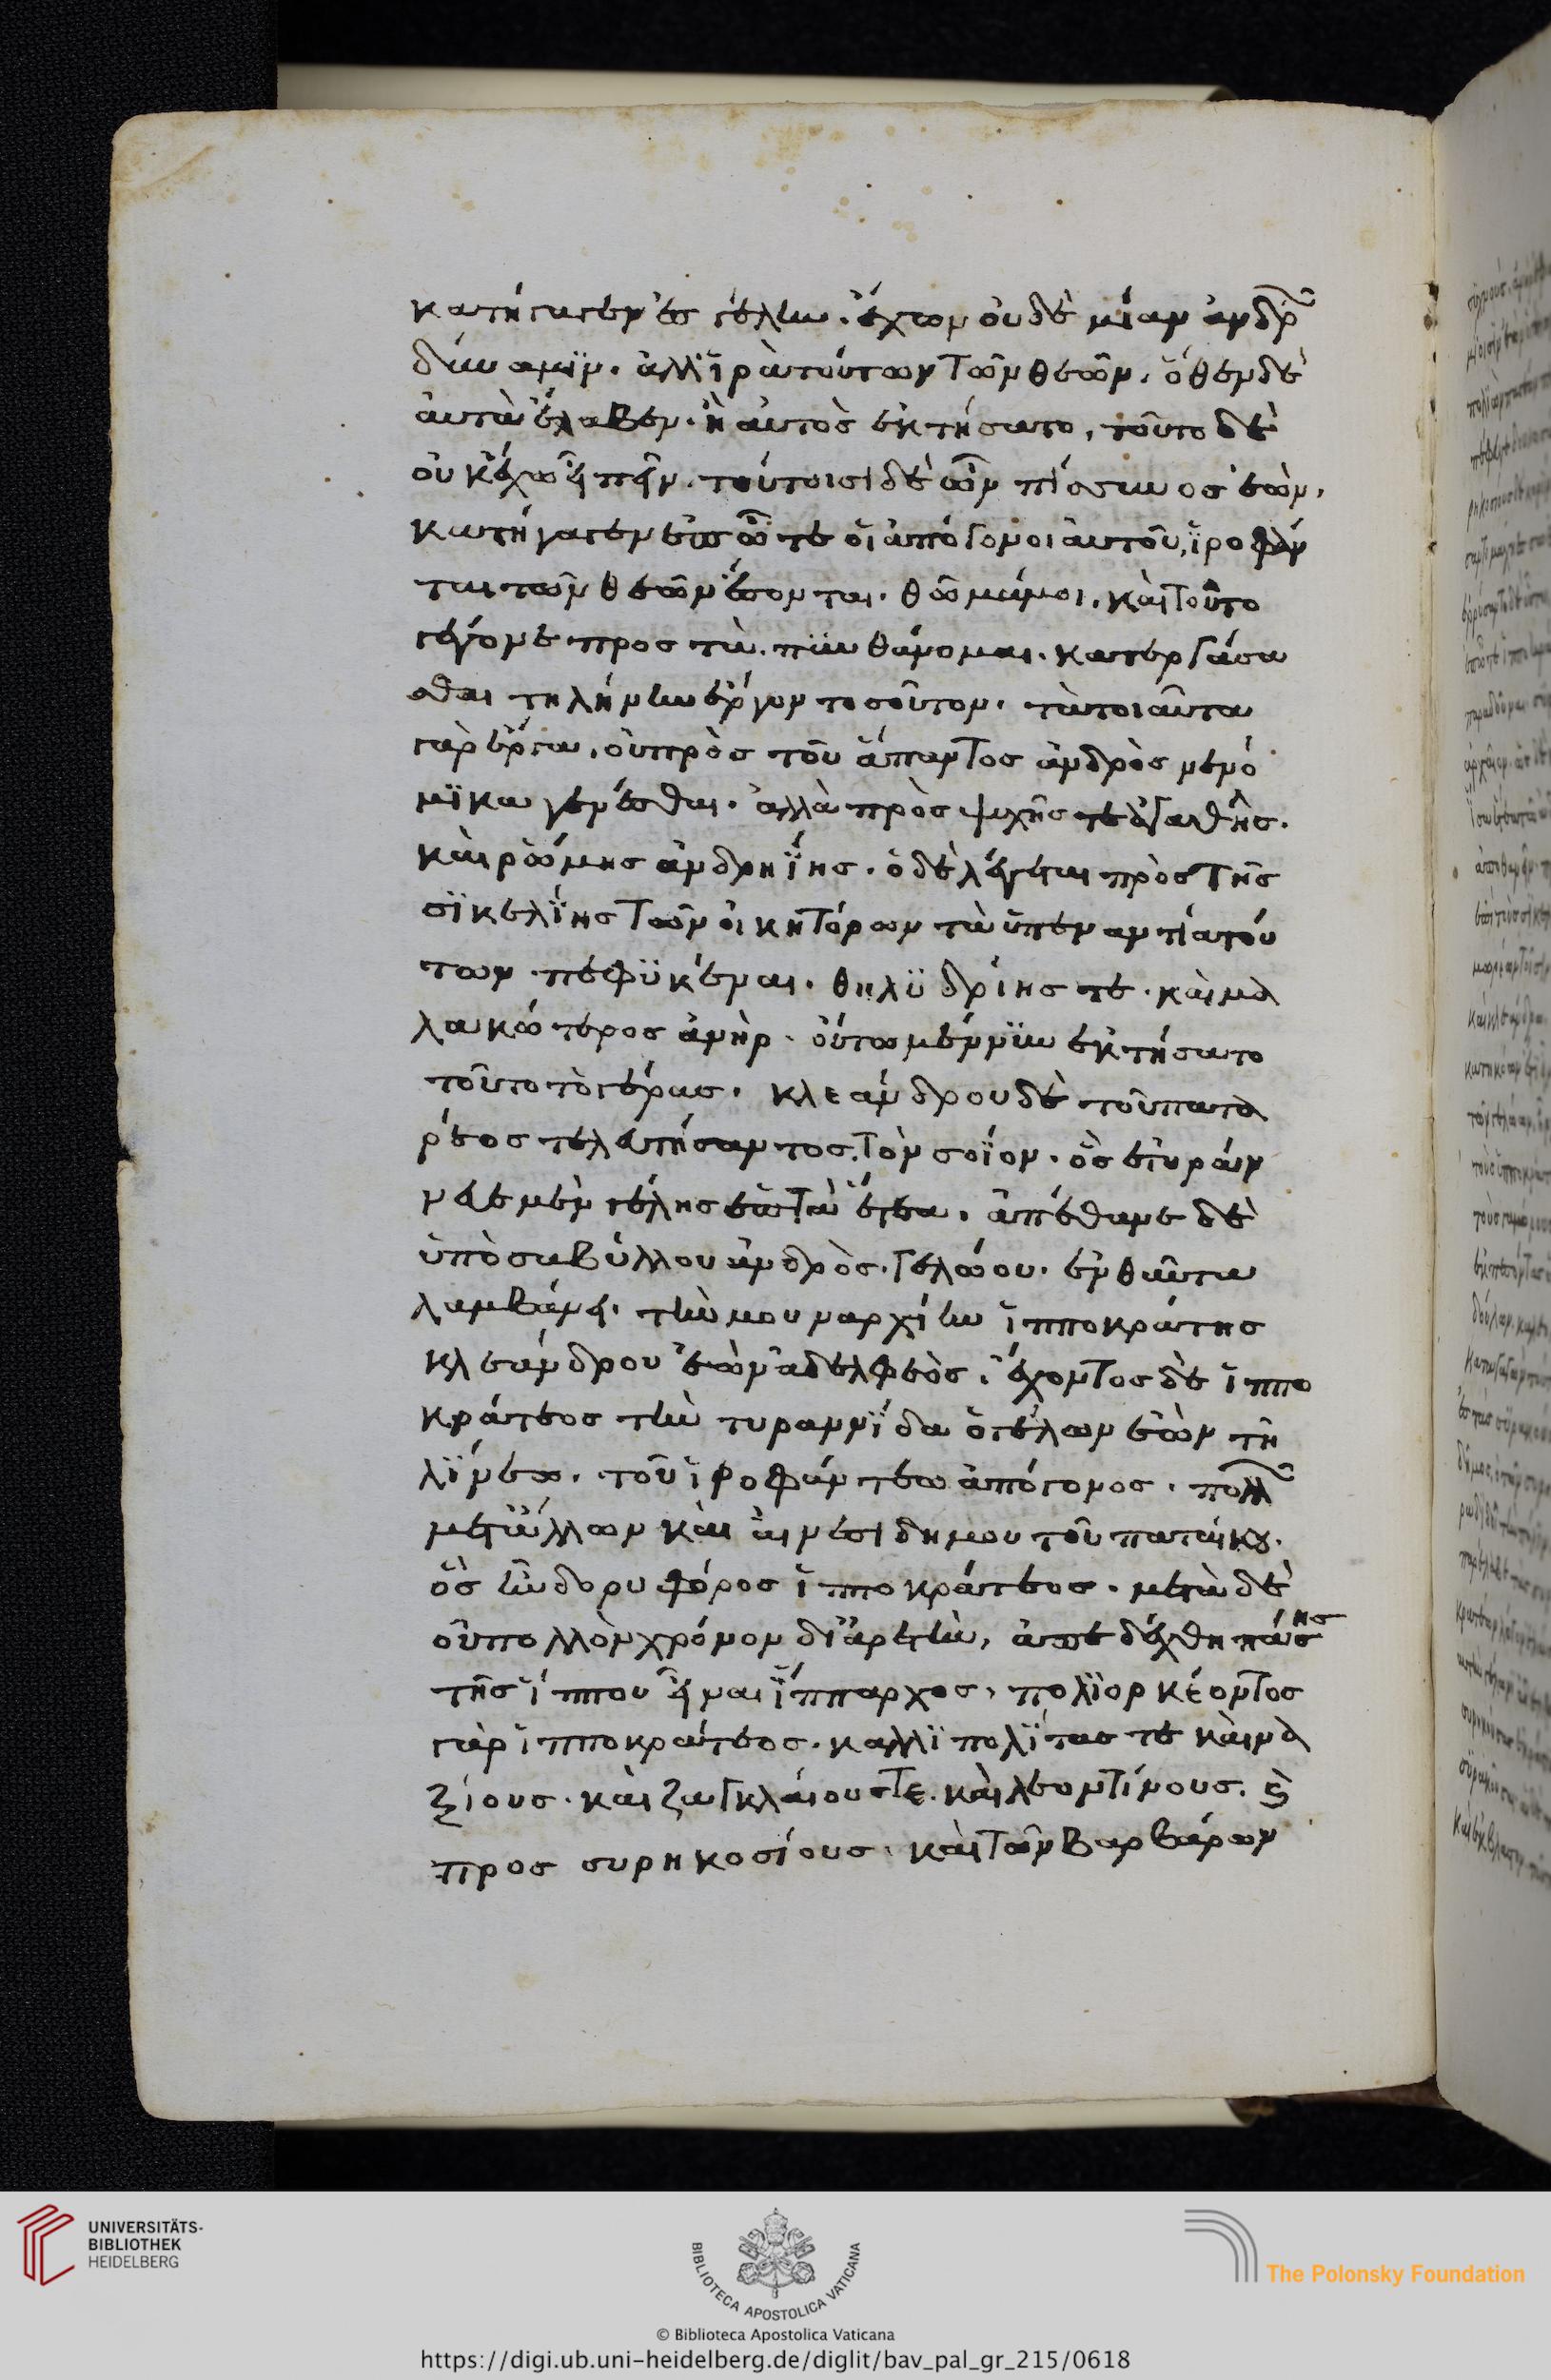 κατήγαγεν ἐς γέλην. ἔχων οὐδὲ μίαν ἀνδρῶ
δύναμϊν. ἀλλ' ἱρὰ τούτων τῶν θεῶν. ὅθεν δὲ
ἀυτὰ ἔλαβεν. ἢ ἀυτὸς ἐκτήσατο, τοῦτο δὲ
οὐκ ἔχω εἰπεῖν. τούτοισι δὲ ὦν πίσσυνος ἐὼν,
κατήγαγεν ἐπ ὧ τε οἱ ἀπόγονοι ἀυτοῦ, ἱροφάν
ται τῶν θεῶν ἔσονται. θῶμά μοι. καὶ τοῦτο
γέγονε προς τὰ πϋνθάνομαι. κατεργάσα
σθαι τηλήνην ἔργον τοσοῦτον. τὰ τοιαῦτα
γὰρ ἔργα, οὐ πρὸς τοῦ ἅπαντος ἀνδρὸς νενό
μϊκα γενέσθαι. ἀλλὰ πρὸς ψυχῆς τε ἀγαθῆς.
καὶ ῥώμης ἀνδρηΐης. ὁ δὲ λέγεται πρὸς τῆς
σϊκελΐης τῶν οἰκητόρων τὰ ὑπεναντία τού
των πεφϋκέναι. θηλϋδρίης τε. καὶ μα
λακώτερος ἀνὴρ. οὕτω μέν νϋν ἐκτήσατο
τοῦτο τὸ γέρας. κλεάνδρου δὲ τοῦ παντα
ρέος τελευτήσαντος. τὸν σοΐον. ὃς ἐτυράν
νευε μὲν γέλης ἑπτὰ ἔτεα. ἀπέθανε δὲ
ὑπὸ σαβύλλου ἀνδρὸς. γελώου. ἐνθαῦτα
λαμβάνει. τὴν μουναρχίην ἱπποκράτης
κλεάνδρου ἐὼν ἀδελφεὸς. ἔχοντος δὲ ἱππο
κράτεος τὴν τυραννΐδα ὁ γέλων ἐὼν τη
λΐνεω. τοῦ ἱροφάντεω ἀπόγονος. πολλῶ
μετ' ἄλλων καὶ αἰνεσιδήμου τοῦ παταίκου.
ὃς ἦν δορυφόρος ἱπποκράτεος. μετὰ δὲ
οὐ πολλὸν χρόνον δι' ἀρετὴν, ἀπεδέχθη πάσης
τῆς ἵππου εἶναι ἵππαρχος. πολϊορκέοντος
γὰρ ἱπποκράτεος. καλλϊπολίτας τε καὶ να
ξίους. καὶ ζαγκλαίους τε. καὶ λεοντίνους. καὶ
προς συρηκοσίους. καὶ τῶν βαρβάρων
UNIVERSITÄTS-
BIBLIOTHEK
HEIDELBERG
BIBLIOTECA APOSTOLICA VATICANA
The Polonsky Foundation
© Biblioteca Apostolica Vaticana
https://digi.ub.uni-heidelberg.de/diglit/bav_pal_gr_215/0618